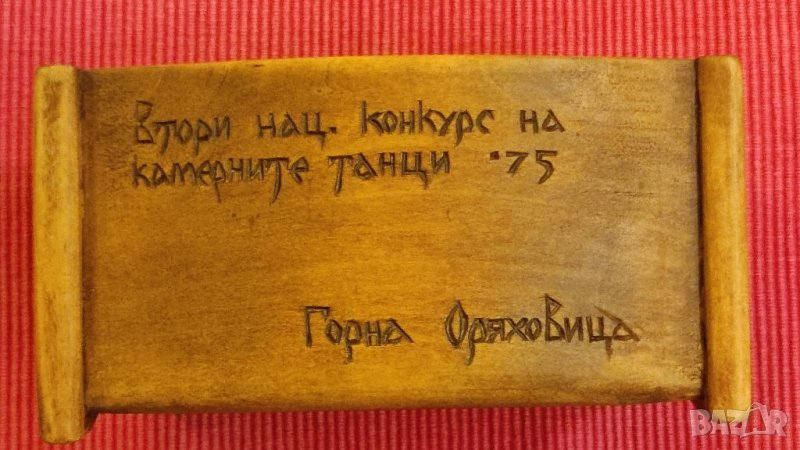 Втори нац. конкурс на
камерните танци '75
Горна Оряховица
BAZAR